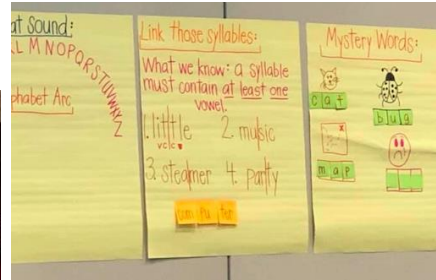 at sound:
L M N O P Q R S T U V W X Y Z
phabet Arc
Link those syllables:
What we know: a syllable
must contain at least one
vowel.
1. little 2. music
vclc
3. steamer 4. party
tu ter
Mystery Words:
cat
bug
map